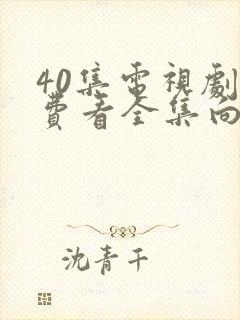 40集電視劇
費看全集向
沈青千